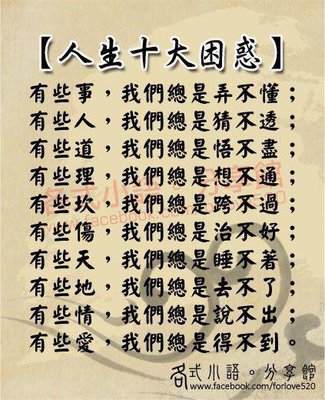 【人生十大困惑】
有些事，我們總是弄不懂；
有些人，我們總是猜不透；
有些道，我們總是悟不盡；
有些理，我們總是想不通；
有些坎，我們總是跨不過；
有些傷，我們總是治不好；
有些天，我們總是睡不著；
有些地，我們總是去不了；
有些情，我們總是說不出；
有些愛，我們總是得不到。
各式小語。分享館
www.facebook.com/forlove520
各式小語。分享館
www.facebook.com/forlove520